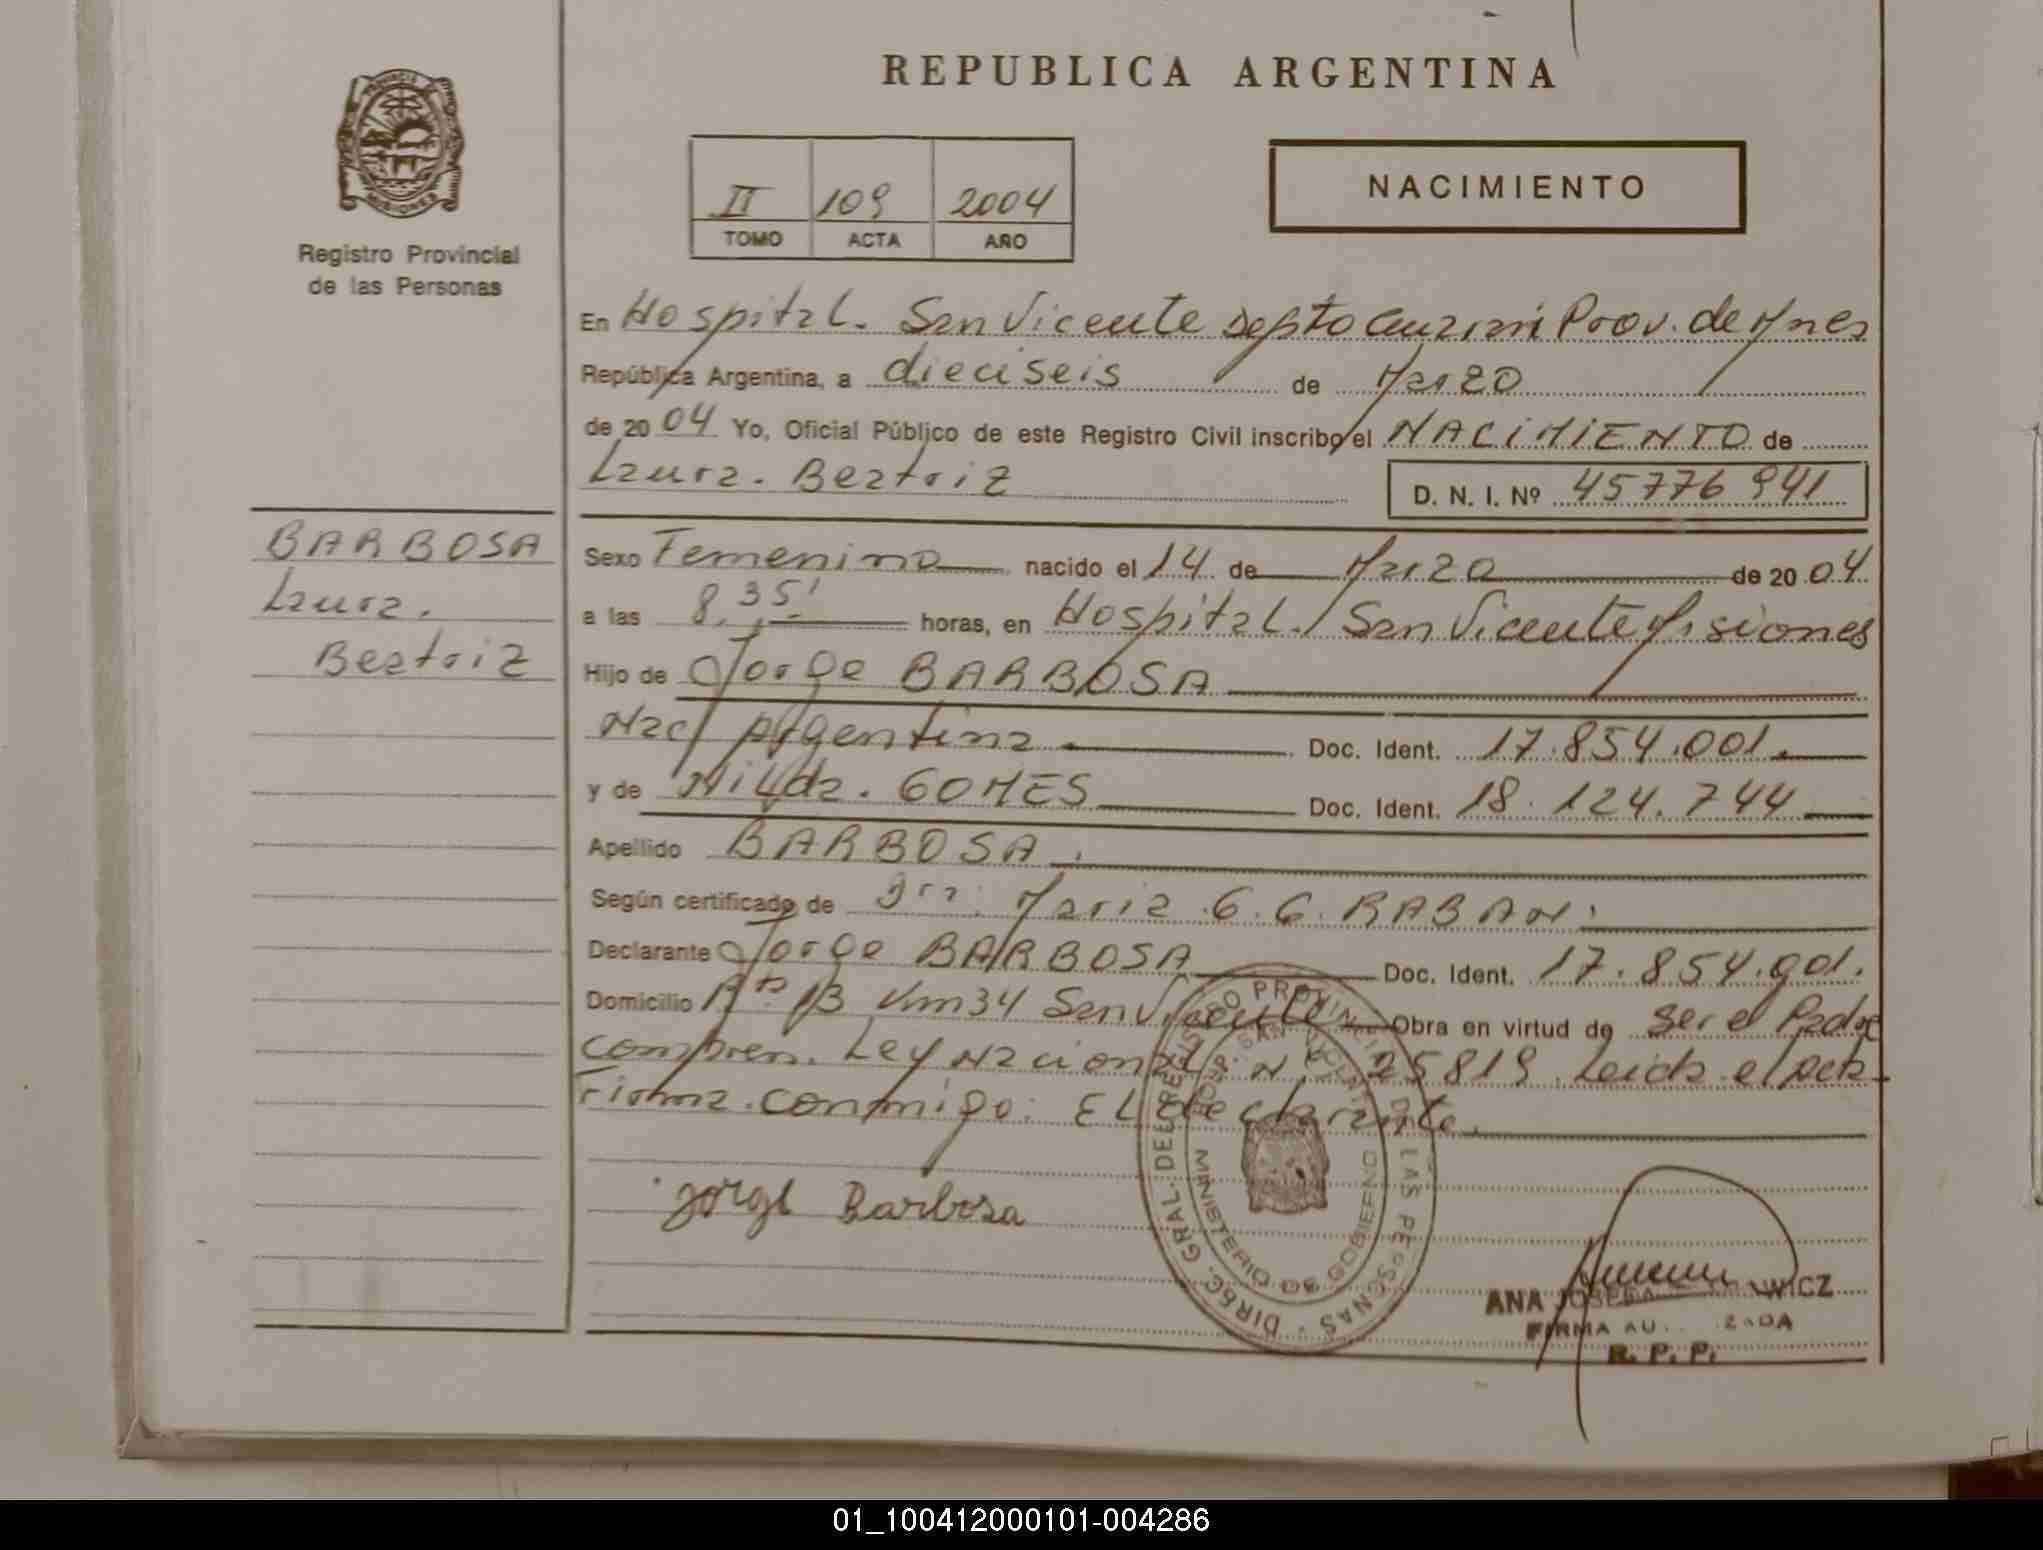 REPUBLICA ARGENTINA
PROVINCIA
MISIONES
Registro Provincial
de las Personas
II 109 2004
TOMO ACTA AÑO
NACIMIENTO
En Hospital. San Vicente Depto Guaraní Prov. de Mnes
República Argentina, a dieciseis de Marzo
de 2004 Yo, Oficial Público de este Registro Civil inscribo el NACIMIENTO de
Laura. Beatriz
D. N. I. Nº 45776941
BARBOSA
Laura.
Beatriz
Sexo Femenino nacido el 14 de Marzo de 2004
a las 8,35' horas, en Hospital. San Vicente Misiones
Hijo de Jorge BARBOSA
Nac/ Argentina Doc. Ident. 17.854.001.
y de Nilda. GOMES Doc. Ident. 18.124.744
Apellido BARBOSA.
Según certificado de Dra. Maria G. G. RABAN.
Declarante Jorge BARBOSA Doc. Ident. 17.854.001.
Domicilio Rta 13 Km 34 San Vicente Obra en virtud de ser el Padre
compren. Ley Nacional Nº 25819 Leida el acta
Firma conmigo: EL declarante.
Jorge Barbosa
DIREC. GRAL. DEL REGISTRO PROVINCIAL DE LAS PERSONAS
HOSP. SAN VICENTE
MINISTERIO DE GOBIERNO
ANA JOSEFA WICZ
FIRMA AU ZADA
R. P. P.
01_100412000101-004286